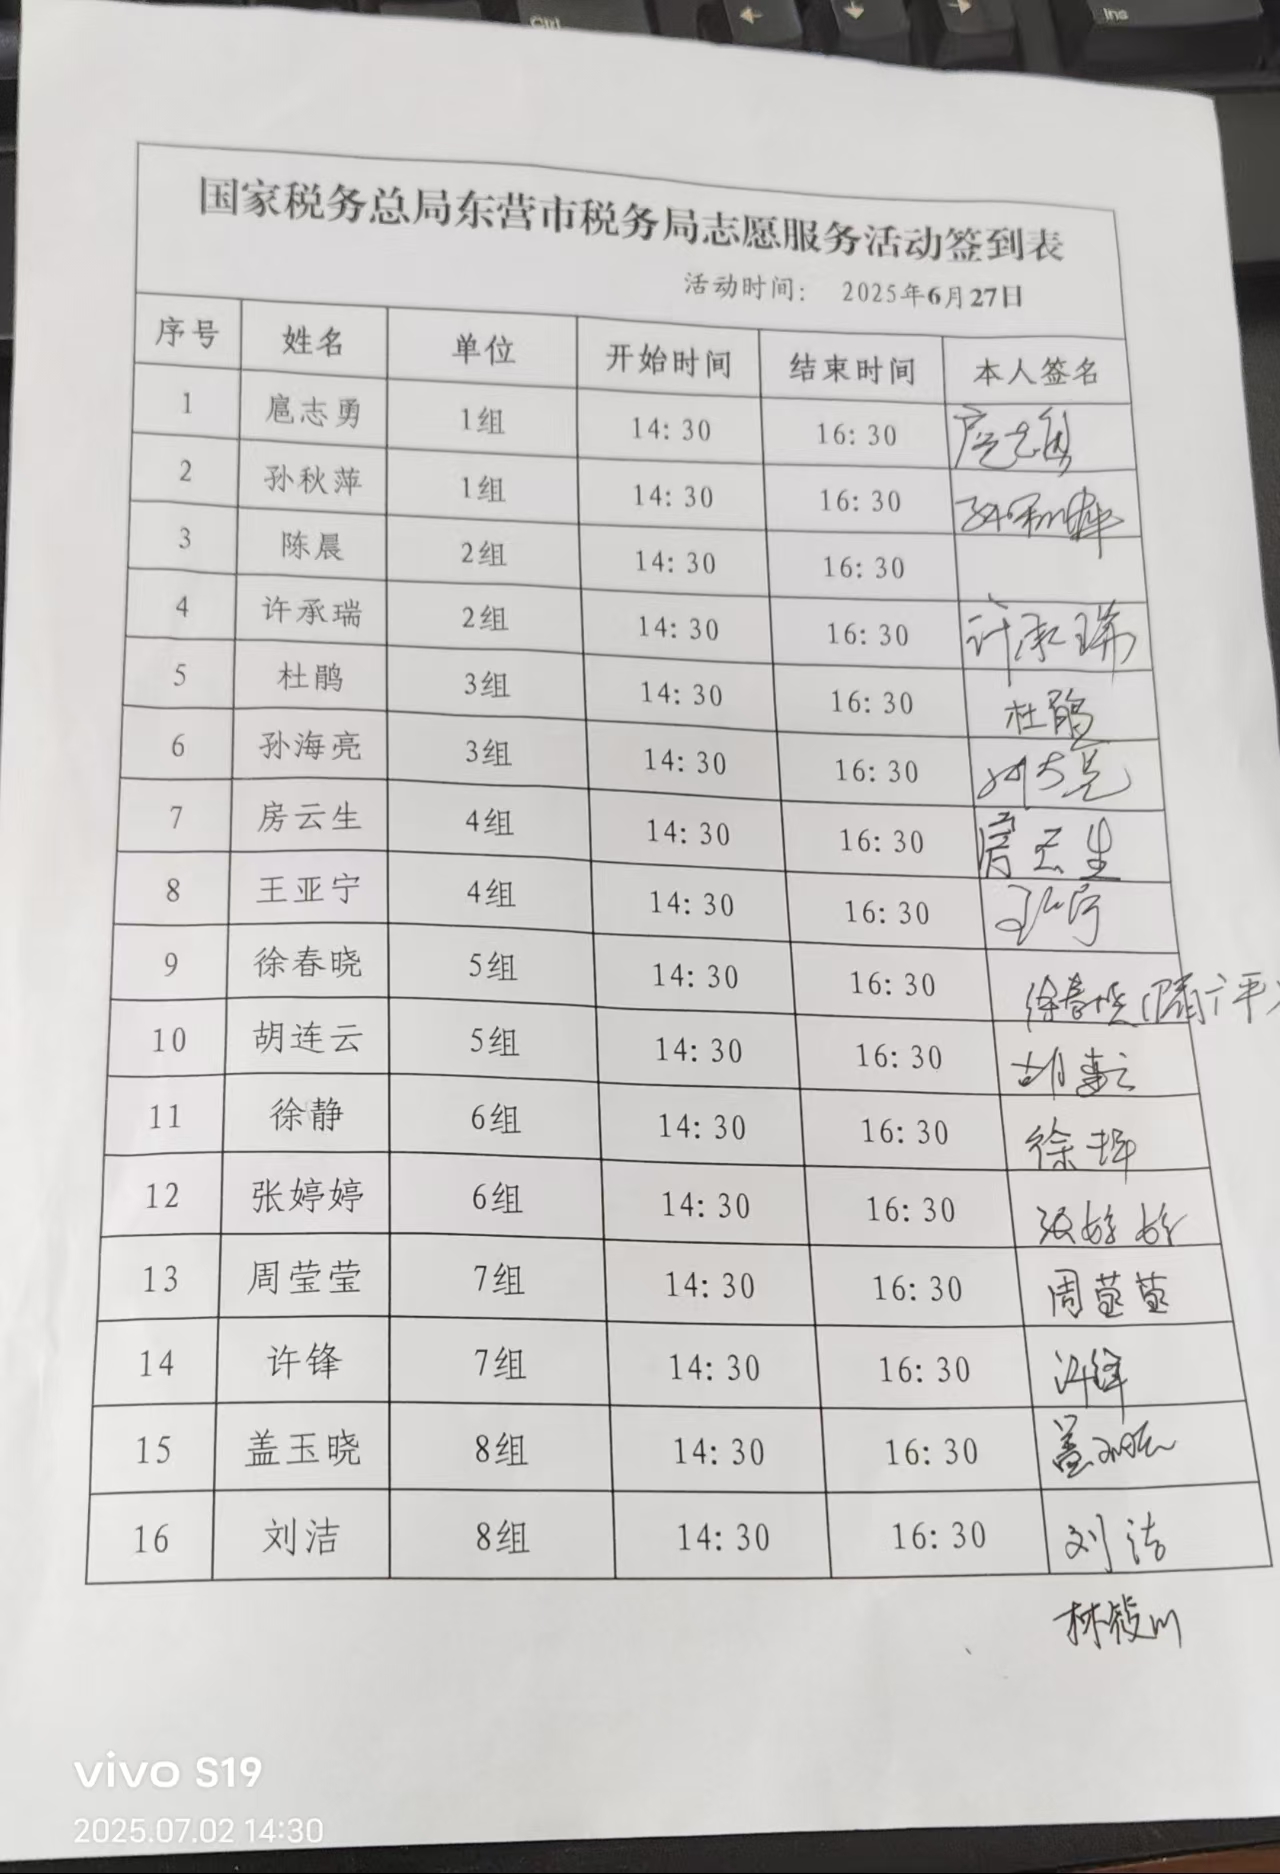 Ctrl
Ins
国家税务总局东营市税务局志愿服务活动签到表
活动时间： 2025年6月27日
序号 姓名 单位 开始时间 结束时间 本人签名
1 扈志勇 1组 14:30 16:30 扈志勇
2 孙秋萍 1组 14:30 16:30 孙秋萍
3 陈晨 2组 14:30 16:30
4 许承瑞 2组 14:30 16:30 许承瑞
5 杜鹃 3组 14:30 16:30 杜鹃
6 孙海亮 3组 14:30 16:30
7 房云生 4组 14:30 16:30 房云生
8 王亚宁 4组 14:30 16:30 王亚宁
9 徐春晓 5组 14:30 16:30 徐春晓
10 胡连云 5组 14:30 16:30 胡连云
11 徐静 6组 14:30 16:30 徐静
12 张婷婷 6组 14:30 16:30 张婷婷
13 周莹莹 7组 14:30 16:30 周莹莹
14 许锋 7组 14:30 16:30 许锋
15 盖玉晓 8组 14:30 16:30 盖玉晓
16 刘洁 8组 14:30 16:30 刘洁
vivo S19
2025.07.02 14:30